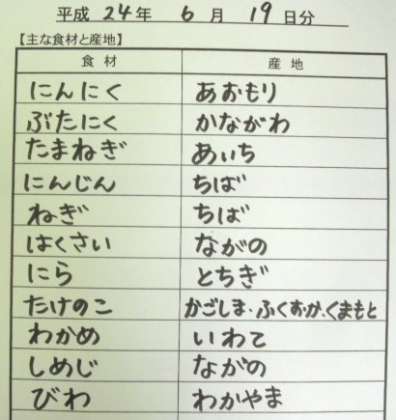 平成 24年 6月 19日分
【主な食材と産地】
食材 産地
にんにく あおもり
ぶたにく かながわ
たまねぎ あいち
にんじん ちば
ねぎ ちば
はくさい ながの
にら とちぎ
たけのこ かごしま・ふくおか、くまもと
わかめ いわて
しめじ ながの
びわ わかやま